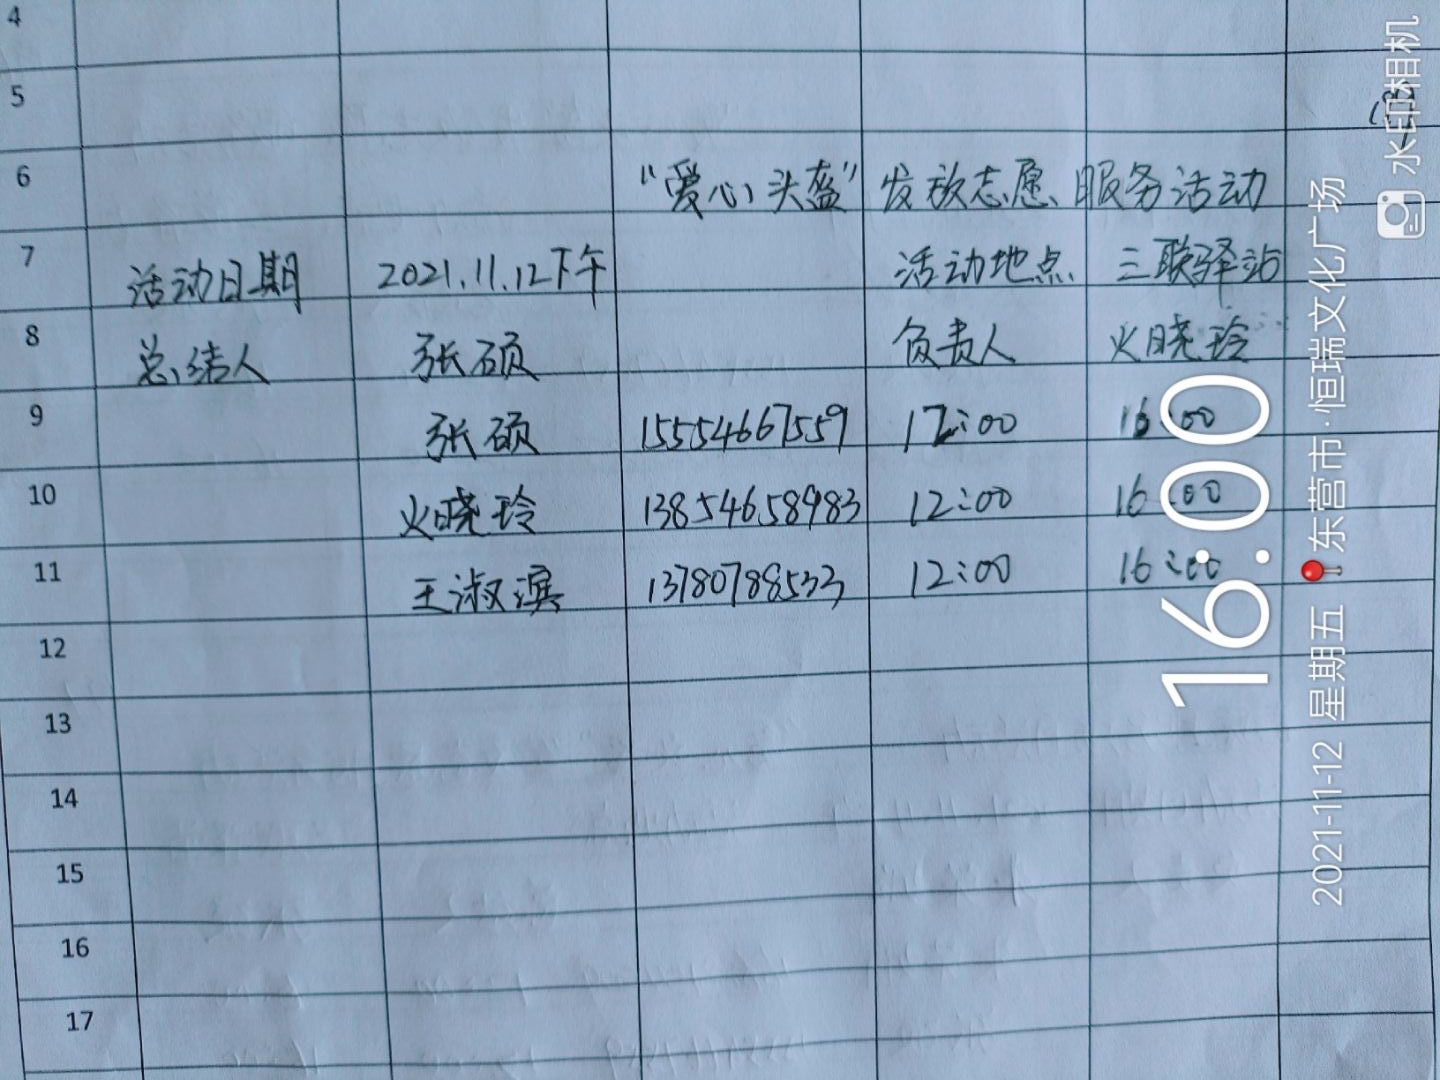 4
5
6 "爱心头盔"发放志愿服务活动
7 活动日期 2021.11.12下午 活动地点 三联驿站
8 总结人 张硕 负责人 火晓玲
9 张硕 15554667559 12:00 16:00
10 火晓玲 13854658983 12:00 16:00
11 王淑滨 13780788533 12:00 16:00
12
13
14
15
16
17
16:00
2021-11-12 星期五 东营市·恒瑞文化广场
水印相机